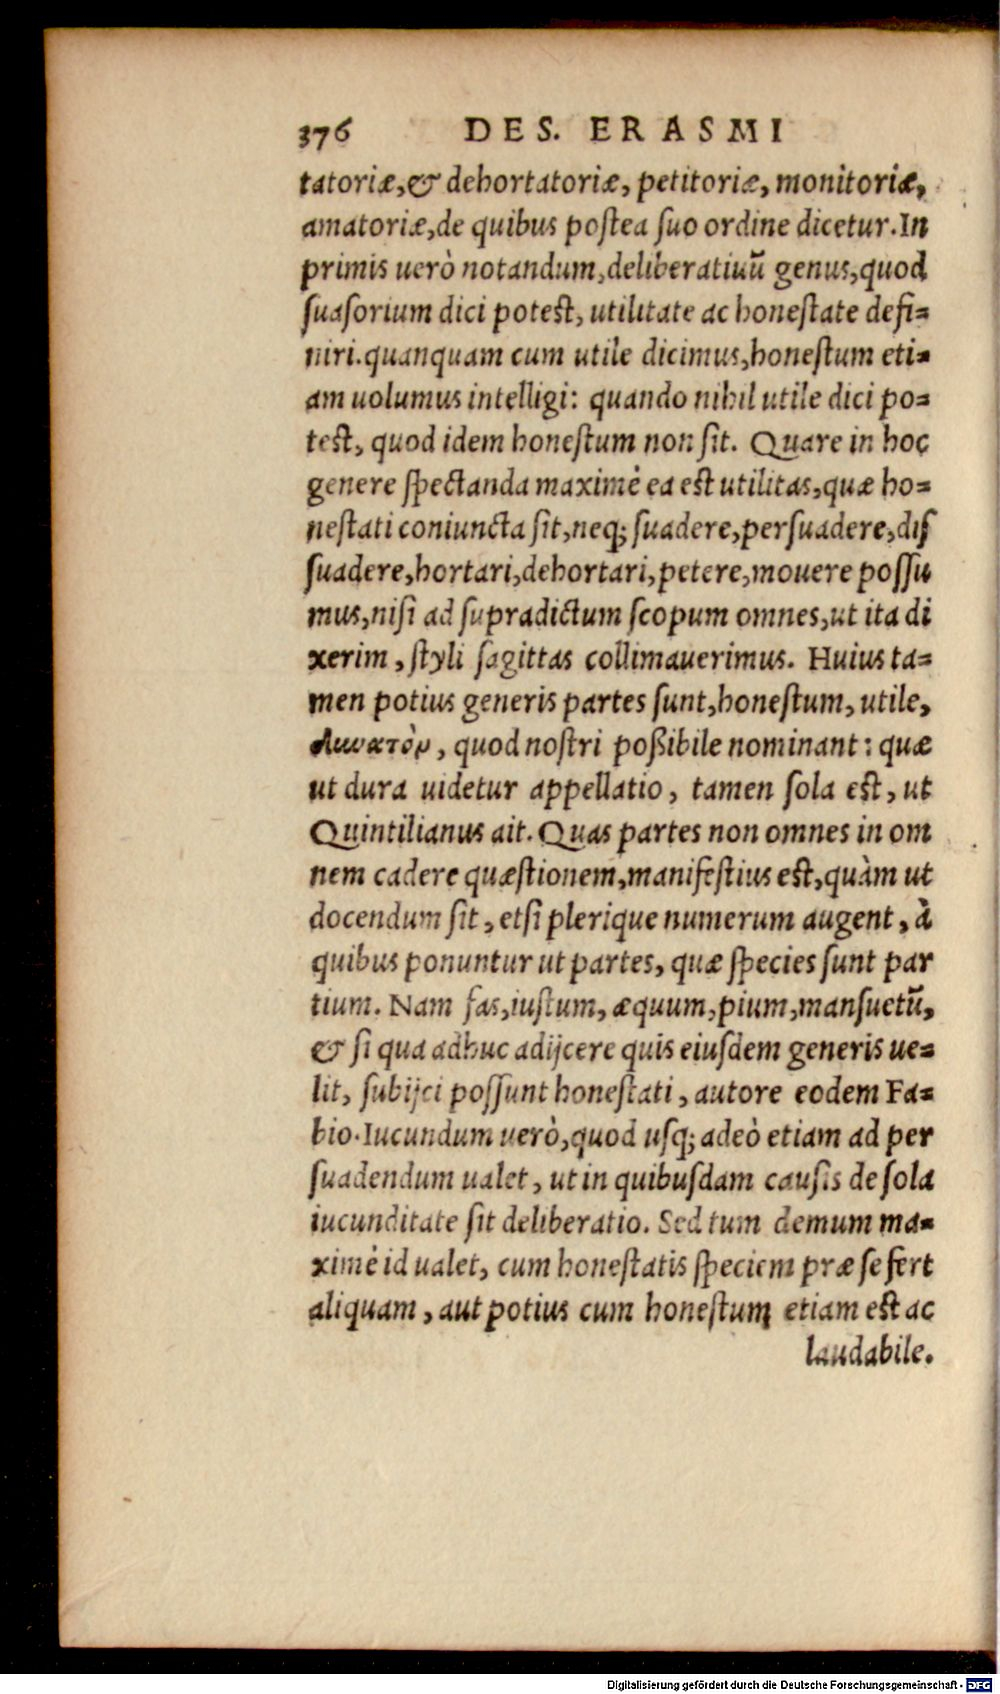 376 DES. ERASMI
tatoriæ, & dehortatoriæ, petitoriæ, monitoriæ,
amatoriæ, de quibus postea suo ordine dicetur. In
primis uerò notandum, deliberatiuū genus, quod
suasorium dici potest, utilitate ac honestate defi=
niri. quanquam cum utile dicimus, honestum eti=
am uolumus intelligi: quando nihil utile dici po=
test, quod idem honestum non sit. Quare in hoc
genere spectanda maximè ea est utilitas, quæ ho=
nestati coniuncta sit, neq; suadere, persuadere, dis
suadere, hortari, dehortari, petere, mouere possu
mus, nisi ad supradictum scopum omnes, ut ita di
xerim, styli sagittas collimauerimus. Huius ta=
men potius generis partes sunt, honestum, utile,
δυνατὸν, quod nostri poßibile nominant: quæ
ut dura uidetur appellatio, tamen sola est, ut
Quintilianus ait. Quas partes non omnes in om
nem cadere quæstionem, manifestius est, quàm ut
docendum sit, etsi plerique numerum augent, à
quibus ponuntur ut partes, quæ species sunt par
tium. Nam fas, iustum, æquum, pium, mansuetū,
& si qua adhuc adijcere quis eiusdem generis ue=
lit, subijci possunt honestati, autore eodem Fa=
bio. Iucundum uerò, quod usq; adeò etiam ad per
suadendum ualet, ut in quibusdam causis de sola
iucunditate sit deliberatio. Sed tum demum ma=
ximè id ualet, cum honestatis speciem præ se fert
aliquam, aut potius cum honestum etiam est ac
laudabile.
Digitalisierung gefördert durch die Deutsche Forschungsgemeinschaft - DFG